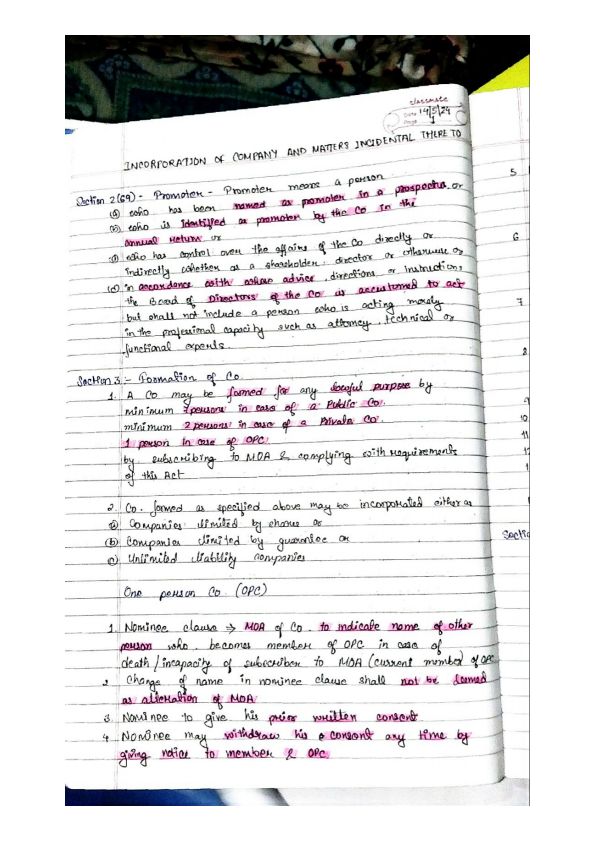 classmate
Date 14/5/24
Page
INCORPORATION OF COMPANY AND MATTERS INCIDENTAL THERE TO
Section 2(69) - Promoter - Promoter means a person
(a) who has been named as promoter in a prospectus or
(b) who is Identified as promoter by the Co in the
annual return or
(c) who has control over the affairs of the Co directly or
indirectly whether as a shareholder, director or otherwise or
(d) in accordance with whose advice, directions or Instructions
the Board of Directors of the Co is accustomed to act
but shall not include a person who is acting merely
in the professional capacity such as attorney, technical or
functional experts.
Section 3 :- Formation of Co.
1. A Co may be formed for any lawful purpose by
minimum 7 persons in case of a Public Co.
minimum 2 persons in case of a Private Co.
1 person In case of OPC
by subscribing to MOA & complying with requirements
of this Act
2. Co. formed as specified above may be incorporated either as
(a) Companies limited by shares or
(b) Companies limited by guarantee or
(c) Unlimited liability companies
One person Co (OPC)
1. Nominee clause → MOA of Co. to indicate name of other
person who becomes member of OPC in case of
death/incapacity of subscriber to MOA (current member) of OPC
2 Change of name in nominee clause shall not be deemed
as alteration of MOA
3 Nominee to give his prior written consent
4 Nominee may withdraw his consent any time by
giving notice to member & OPC
5
6
7
8
9
10
11
12
Sectio